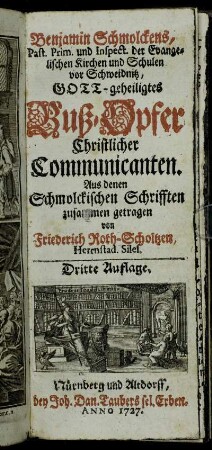 Benjamin Schmolckens,
Past. Prim. und Inspect. der Evange-
lischen Kirchen und Schulen
vor Schweidnitz,
GOTT-geheiligtes
Buß-Opfer
Christlicher
Communicanten.
Aus denen
Schmolckischen Schrifften
zusammen getragen
von
Friederich Roth-Scholtzen,
Herrnstad. Siles.
Dritte Auflage.
Nürnberg und Altdorff,
bey Joh. Dan. Taubers sel. Erben.
ANNO 1727.